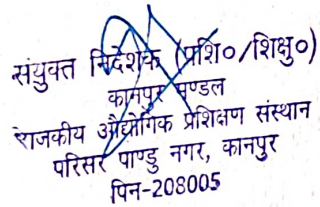 संयुक्त निदेशक (प्रशि०/शिक्षु०)
कानपुर मण्डल
राजकीय औद्योगिक प्रशिक्षण संस्थान
परिसर पाण्डु नगर, कानपुर
पिन-208005